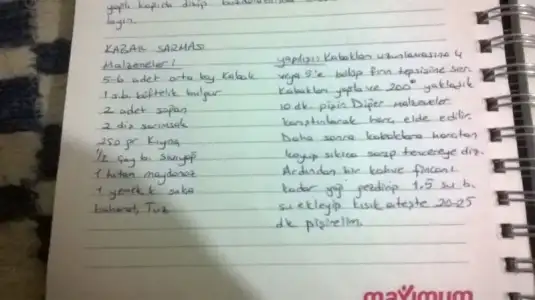 yağlı kağıda dizip
layın.
KABAK SARMASI
Malzemeler:
5-6 adet orta boy Kabak
1 s.b. köftelik bulgur
2 adet soğan
2 diş sarımsak
250 gr Kıyma
1/2 çay b. Sıvıyağ
1 tutam maydanoz
1 yemek k. salça
baharat, Tuz
yapılışı: Kabakları uzunlamasına 4
veya 5'e bölüp fırın tepsisine ser.
Kabakları yağla ve 200° yaklaşık
10 dk. pişir. Diğer malzemeler
karıştırılarak harç elde edilir.
Daha sonra kabaklara harçtan
koyup sıkıca sarıp tencereye diz.
Ardından bir kahve fincanı
kadar yağ gezdirip 1,5 su b.
su ekleyip kısık ateşte 20-25
dk pişirelim.
maximum